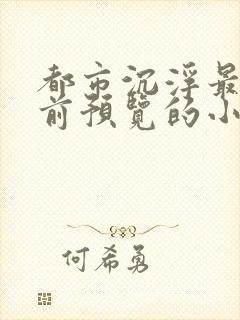 都市沉浮最
前預覽的小
何希勇